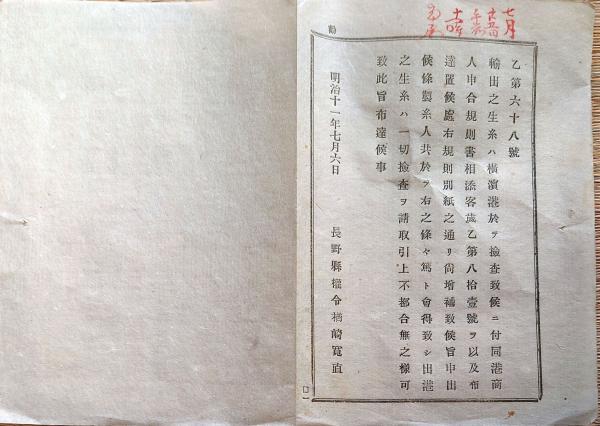 勸
七月
乙第六十八號
輸出之生糸ハ橫濱港於テ檢查致候ニ付同港商
人申合規則書相添客歲乙第八拾壹號ヲ以及布
達置候處右規則別紙之通リ尙增補致候旨申出
候條製糸人共於テ右之條々篤ト會得致シ出港
之生糸ハ一切檢查ヲ請取引上不都合無之樣可
致此旨布達候事
明治十一年七月六日
長野縣權令楢崎寬直